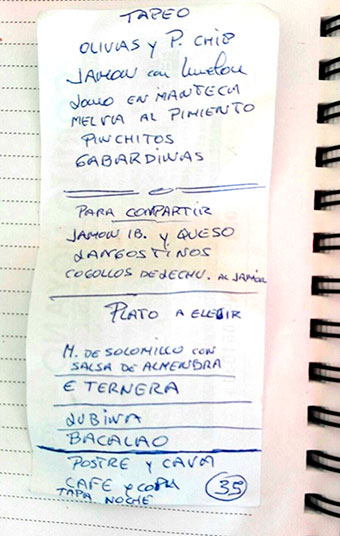 TAPEO
OLIVAS y P. CHIP
JAMON con melon
LOMO EN MANTECA
MELVA AL PIMIENTO
PINCHITOS
GABARDINAS
PARA COMPARTIR
JAMON IB. y QUESO
LANGOSTINOS
COGOLLOS DE LECHU. AL JAMÓN
PLATO A ELEGIR
M. DE SOLOMILLO CON
SALSA DE ALMENDRA
E TERNERA
LUBINA
BACALAO
POSTRE y CAVA
CAFE y COPA 35
TAPA NOCHE